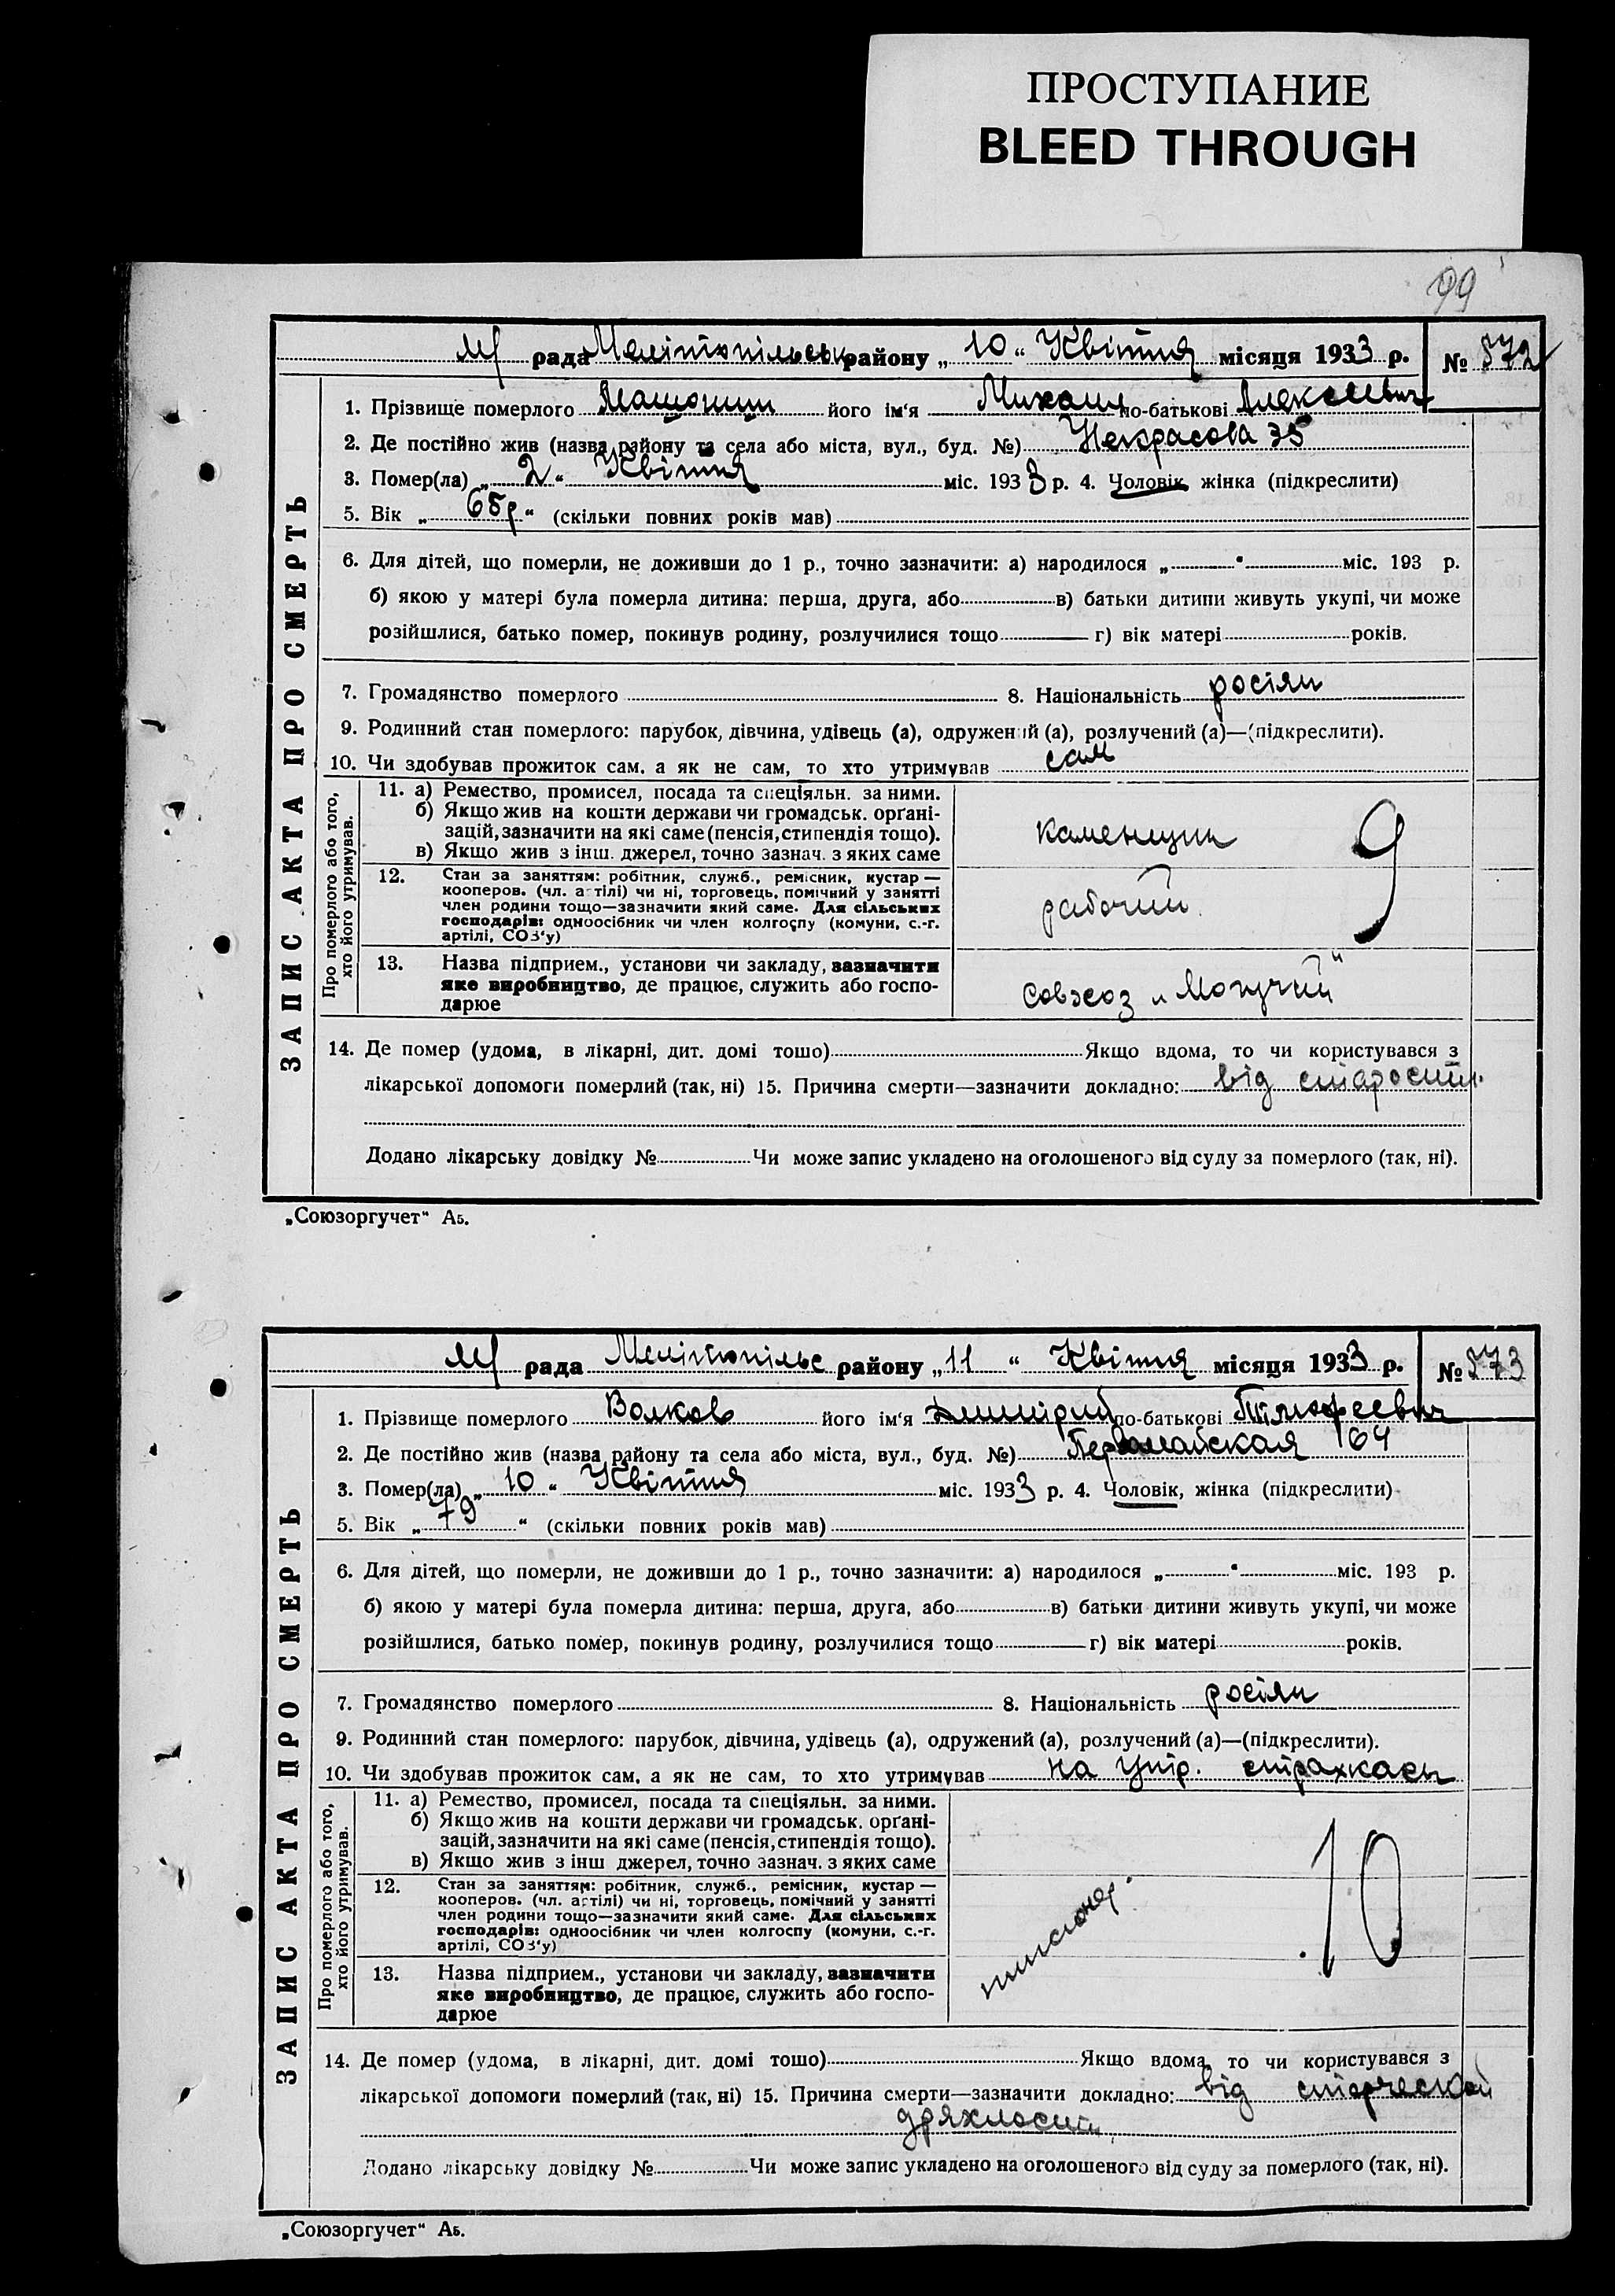 ПРОСТУПАНИЕ
BLEED THROUGH
99
рада Мелітопільськ району „ 10 “ Квітня місяця 1933 р. № 872
1. Прізвище померлого його ім‘я Михаил по-батькові Алексеевич
2. Де постійно жив (назва району та села або міста, вул., буд. №) Некрасова 35
3. Помер(ла) „ 2 “ Квітня міс. 1933 р. 4. Чоловік, жінка (підкреслити)
5. Вік „ 65 р “ (скільки повних років мав)
6. Для дітей, що померли, не доживши до 1 р., точно зазначити: а) народилося „ “ міс. 193 р.
б) якою у матері була померла дитина: перша, друга, або в) батьки дитини живуть укупі, чи може
розійшлися, батько помер, покинув родину, розлучилися тощо г) вік матері років.
7. Громадянство померлого 8. Національність росіян
9. Родинний стан померлого: парубок, дівчина, удівець (а), одружений (а), розлучений (а)—(підкреслити).
10. Чи здобував прожиток сам, а як не сам, то хто утримував сам
ЗАПИС АКТА ПРО СМЕРТЬ
Про померлого або того,
хто його утримував.
11. а) Ремество, промисел, посада та спеціяльн. за ними.
б) Якщо жив на кошти держави чи громадськ. орґані-
зацій, зазначити на які саме (пенсія, стипендія тощо).
в) Якщо жив з інш. джерел, точно зазнач. з яких саме
каменщик 9
12. Стан за заняттям: робітник, служб., ремісник, кустар —
кооперов. (чл. артілі) чи ні, торговець, помічний у занятті
член родини тощо—зазначити який саме. Для сільських
господарів: одноосібник чи член колгоспу (комуни, с.-г.
артілі, СОЗ‘у)
рабочий
13. Назва підприєм., установи чи закладу, зазначити
яке виробництво, де працює, служить або госпо-
дарює
совхоз „Могучий“
14. Де помер (удома, в лікарні, дит. домі тощо) Якщо вдома, то чи користувався з
лікарської допомоги померлий (так, ні) 15. Причина смерти—зазначити докладно: від старости
Додано лікарську довідку № Чи може запис укладено на оголошеного від суду за померлого (так, ні).
„Союзоргучет“ А5.
рада Мелітопільс району „ 11 “ Квітня місяця 1933 р. № 873
1. Прізвище померлого Волков його ім‘я Дмитрий по-батькові Тімофеевич
2. Де постійно жив (назва району та села або міста, вул., буд. №) Первомайская 164
3. Помер(ла) „ 10 “ Квітня міс. 1933 р. 4. Чоловік, жінка (підкреслити)
5. Вік „ 79 “ (скільки повних років мав)
6. Для дітей, що померли, не доживши до 1 р., точно зазначити: а) народилося „ “ міс. 193 р.
б) якою у матері була померла дитина: перша, друга, або в) батьки дитини живуть укупі, чи може
розійшлися, батько помер, покинув родину, розлучилися тощо г) вік матері років.
7. Громадянство померлого 8. Національність росіян
9. Родинний стан померлого: парубок, дівчина, удівець (а), одружений (а), розлучений (а)—(підкреслити).
10. Чи здобував прожиток сам, а як не сам, то хто утримував на утр. страхкасы
ЗАПИС АКТА ПРО СМЕРТЬ
Про померлого або того,
хто його утримував.
11. а) Ремество, промисел, посада та спеціяльн. за ними.
б) Якщо жив на кошти держави чи громадськ. орґані-
зацій, зазначити на які саме (пенсія, стипендія тощо).
в) Якщо жив з інш джерел, точно зазнач. з яких саме
12. Стан за заняттям: робітник, служб., ремісник, кустар —
кооперов. (чл. артілі) чи ні, торговець, помічний у занятті
член родини тощо—зазначити який саме. Для сільських
господарів: одноосібник чи член колгоспу (комуни, с.-г.
артілі, СОЗ‘у)
пенсионер. 10
13. Назва підприєм., установи чи закладу, зазначити
яке виробництво, де працює, служить або госпо-
дарює
14. Де помер (удома, в лікарні, дит. домі тощо) Якщо вдома, то чи користувався з
лікарської допомоги померлий (так, ні) 15. Причина смерти—зазначити докладно: від старческой
дряхлости
Додано лікарську довідку № Чи може запис укладено на оголошеного від суду за померлого (так, ні).
„Союзоргучет“ А5.